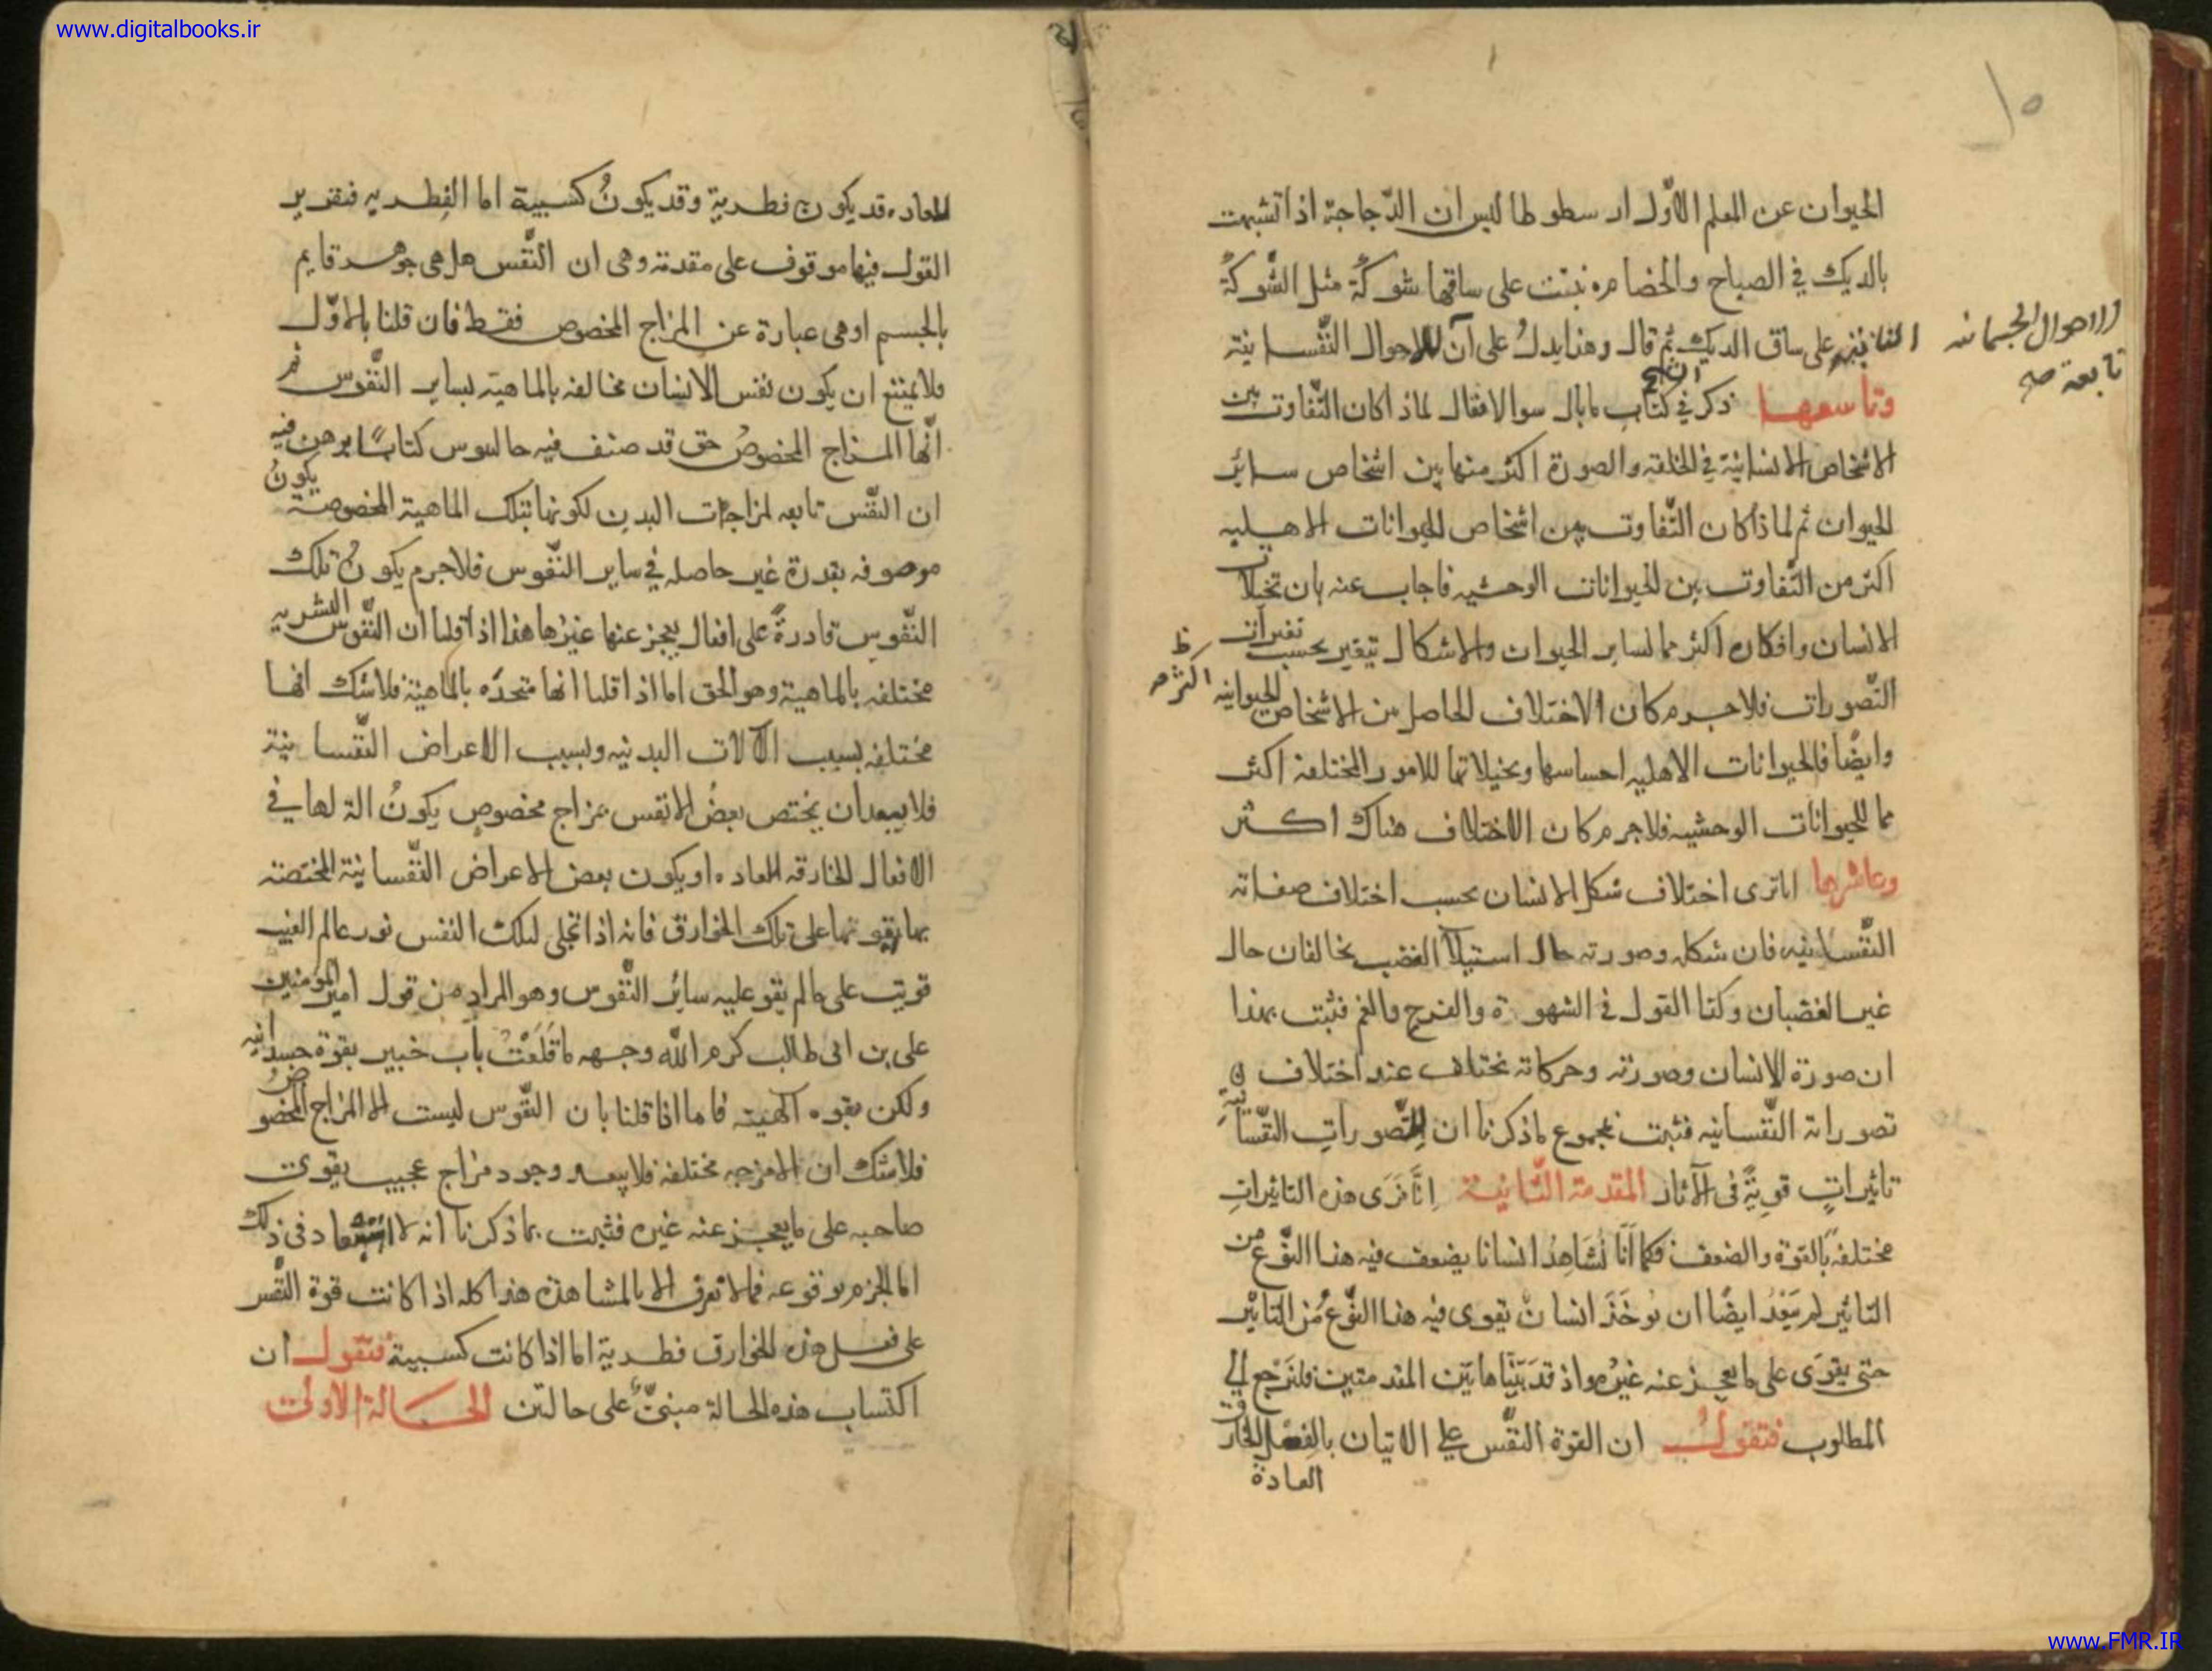 www.digitalbooks.ir
الحيوان عن المعلم الاوّل ارسطو طاليس ان الدّجاجة اذا تشبهت
بالديك في الصياح والخصامه نبتت على ساقها شوكةٌ مثل الشّوكةٌ
النابته على ساق الديك ثم قال وهذا يدلُ على ان الاحوال النّفسانية
الاحوال الجسمانيه
تابعة صح
وتاسعها ذكر في كتاب مابال سوالا فقال لماذا كان التّفاوت بين
الاشخاص الانسانيّة في الخلقه والصورة اكثر منها بين اشخاص سائر
الحيوان ثم لماذا كان التّفاوت بين اشخاص الحيوانات الاهليه
اكثر من التّفاوت بين الحيوانات الوحشيه فاجاب عنه بان تخيلات
الانسان وافكاره اكثر مما لساير الحيوان والاشكال تتغير بحسب تغيرات
التّصورات فلاجرم كان الاختلاف الحاصل بين الاشخاص الحيوانيه اكثر صح
وايضًا فالحيوانات الاهليه احساسها وتخيلاتها للامور المختلفة اكثر
مما للحيوانات الوحشيه فلاجرم كان الاختلاف هناك اكثر
وعاشرها انا نرى اختلاف شكل الانسان بحسب اختلاف صفاته
النّفسانيه فان شكله وصورته حال استيلآ الغضب يخالفان حال
غير الغضبان وكذا القول في الشهوة والفرح والغم فثبت بهذا
ان صورة الانسان وصورته وحركاته تختلف عند اختلاف
تصوراته النّفسانيه فثبت بمجموع ماذكرنا ان للتّصوراتِ النّفسانية
تاثيراتٍ قويةً في الآثار المقدمة الثّانية انّا نَرَى هذه التاثيراتِ
مختلفةً بالقوّة والضعف فكما اَنّا نُشَاهِدُ انسانا يضعف فيه هذا النّوع من
التاثير لم يَبْعُد ايضًا ان يوخَذَ انسانٌ يقوى فيه هذا النّوعُ من التاثير
حتى يقوَى على مايعجز عنه غيرُه واذ قد بَيّنا هاتين المقدمتين فلنَرْجع الى
المطلوب فنقول ان القوة النّفس على الاتيان بالفعل الخارق
العادة
للعاده قد يكون فطرية وقد يكونُ كسبية اما الفِطريه فتقرير
القول فيها موقوف على مقدمة وهى ان النّفس هل هى جوهر قايم
بالجسم او هى عبارة عن المزاج المخصوص فقط فان قلنا بالاوّل
فلا يمتنع ان يكون نفس الانسان مخالفه بالماهية لساير النّفوس
انّها المزاج المخصوصُ حق قد صنف فيه جالينوس كتابًا برهن فيه
ان النّفس تابعه لمزاجات البدن لكونها بتلك الماهية المخصوصة يكونُ
موصوفه بقدرة غير حاصله في ساير النّفوس فلاجرم يكونُ تلك
النّفوس قادرةً على افعال يعجز عنها غيرُها هذا اذا قلنا ان النّفوس البشريه
مختلفه بالماهية وهو الحق اما اذا قلنا انها متحدّه بالماهيّة فلاشك انها
مختلفه بسبب الآلات البدنيه وبسبب الاعراض النّفسانية
فلا يبعد ان يختص بعضُ الانفس بمزاج مخصوصٍ يكونُ الة لها في
الافعال الخارقه للعاده او يكون بعض الاعراض النّفسانية المختصة
بها يقويها على تلك الخوارق فانه اذا تجلى لتلك النفس نور عالم الغيب
قويت على مالم يقو عليه سائر النّفوس وهو المراد من قول امير المؤمنين
على بن ابى طالب كرم اللّه وجهه ماقَلَعْتُ بابَ خيبر بقوة جسدانيه
ولكن بقوه آلهية فاما اذا قلنا بان النّفوس ليست الا المزاج المخصوصُ
فلاشك ان الامزجه مختلفه فلا يبعد وجود مزاج عجيب يقوى
صاحبه على مايعجز عنه غيره فثبت بما ذكرنا انه لا استبعاد في ذلك
اما الجزم بوقوعه فمالا تعرف الا بالمشاهده هذا كله اذا كانت قوة النّفس
على فعل هذه الخوارق فطرية اما اذا كانت كسبية فنقول ان
اكتساب هذه الحالة مبنىٌّ على حالتين الحالة الاولى
www.FMR.IR